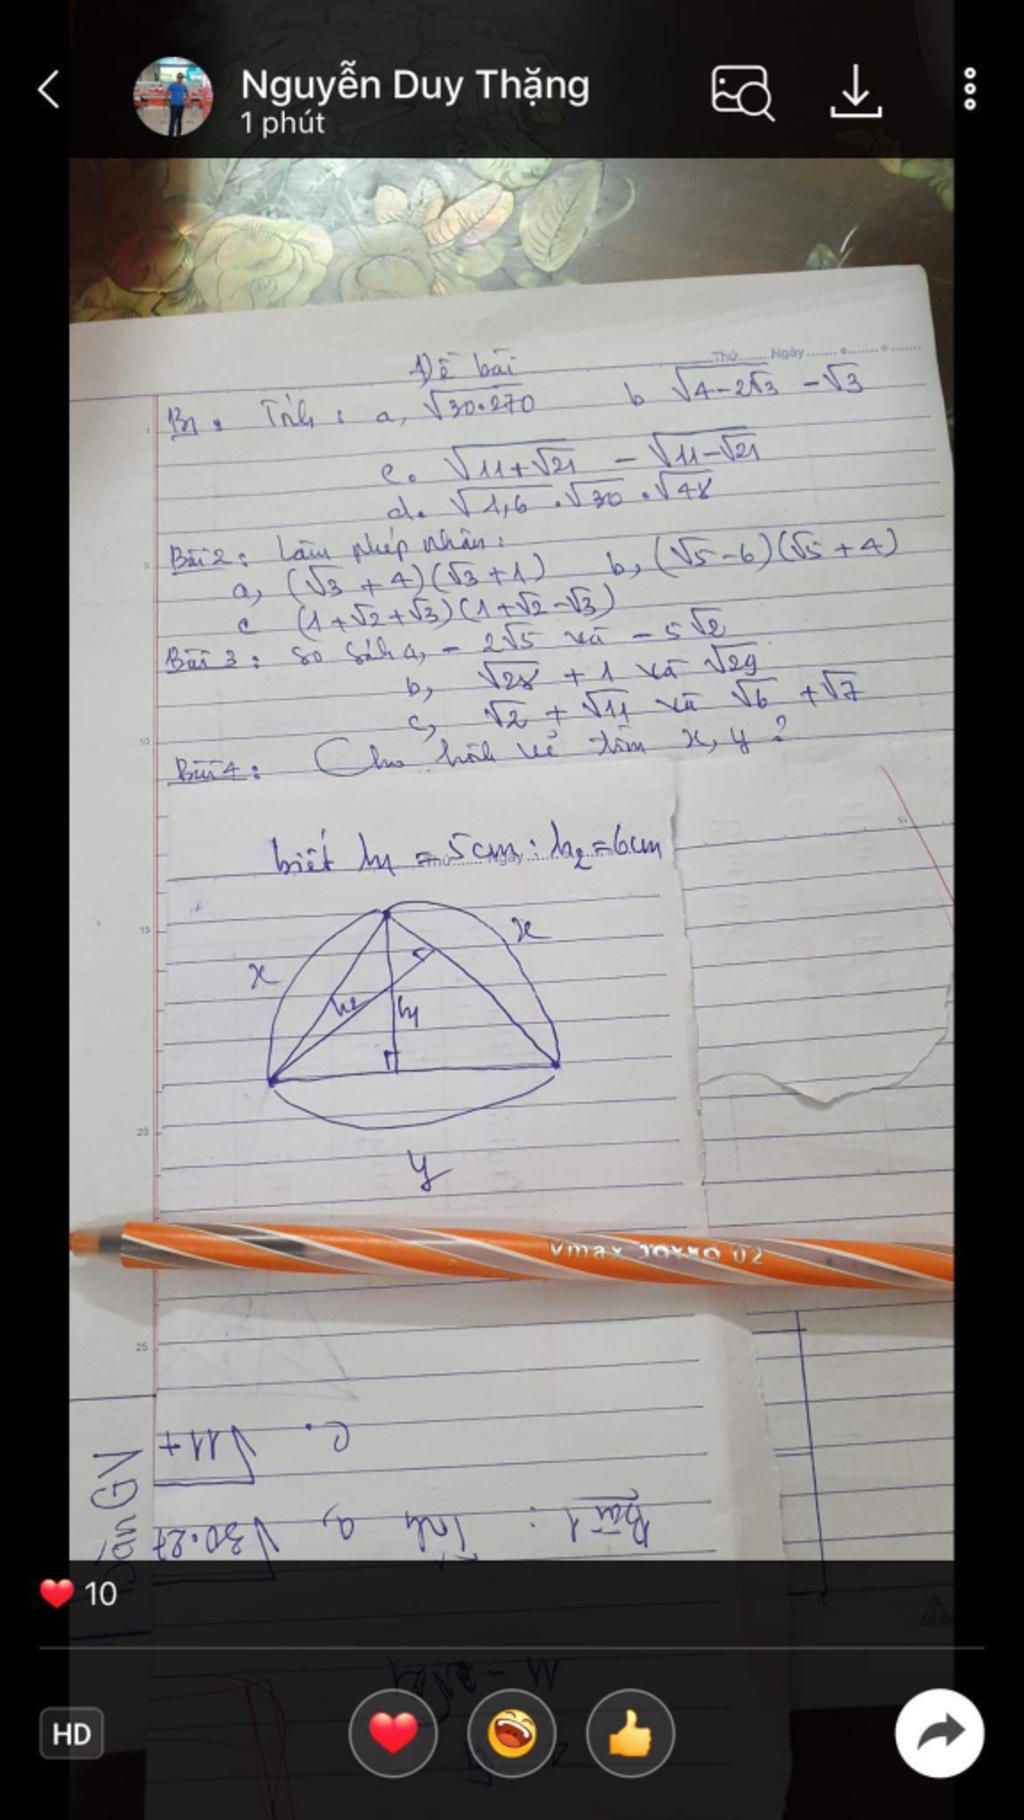 Nguyễn Duy Thặng
1 phút
Thứ....... Ngày
Đề bài
B1: Tính: a, √30.270 b √4-2√3 -√3
c. √11+√21 - √11-√21
d. √1,6 . √30 . √48
Bài 2: Làm phép nhân:
a, (√3 + 4)(√3+1) b, (√5-6)(√5+4)
c (1+√2+√3)(1+√2-√3)
Bài 3: So sánh a, - 2√5 và - 5√2
b, √28 + 1 và √29
c, √2 + √11 và √6 + √7
Bài 4: Cho hình vẽ tìm x, y ?
biết h1 = 5cm : h2 = 6cm
x
x
h2
h1
y
5
10
15
15
20
Vmax JOKKO 02
25
c. √11+
Bài 1: Tính a, √30.27
GV
10
HD